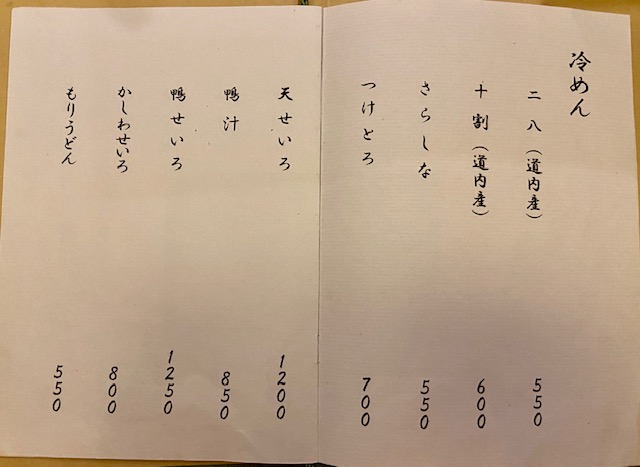 冷めん
二八（道内産） 550
十割（道内産） 600
さらしな 550
つけとろ 700
天せいろ 1200
鴨汁 850
鴨せいろ 1250
かしわせいろ 800
もりうどん 550